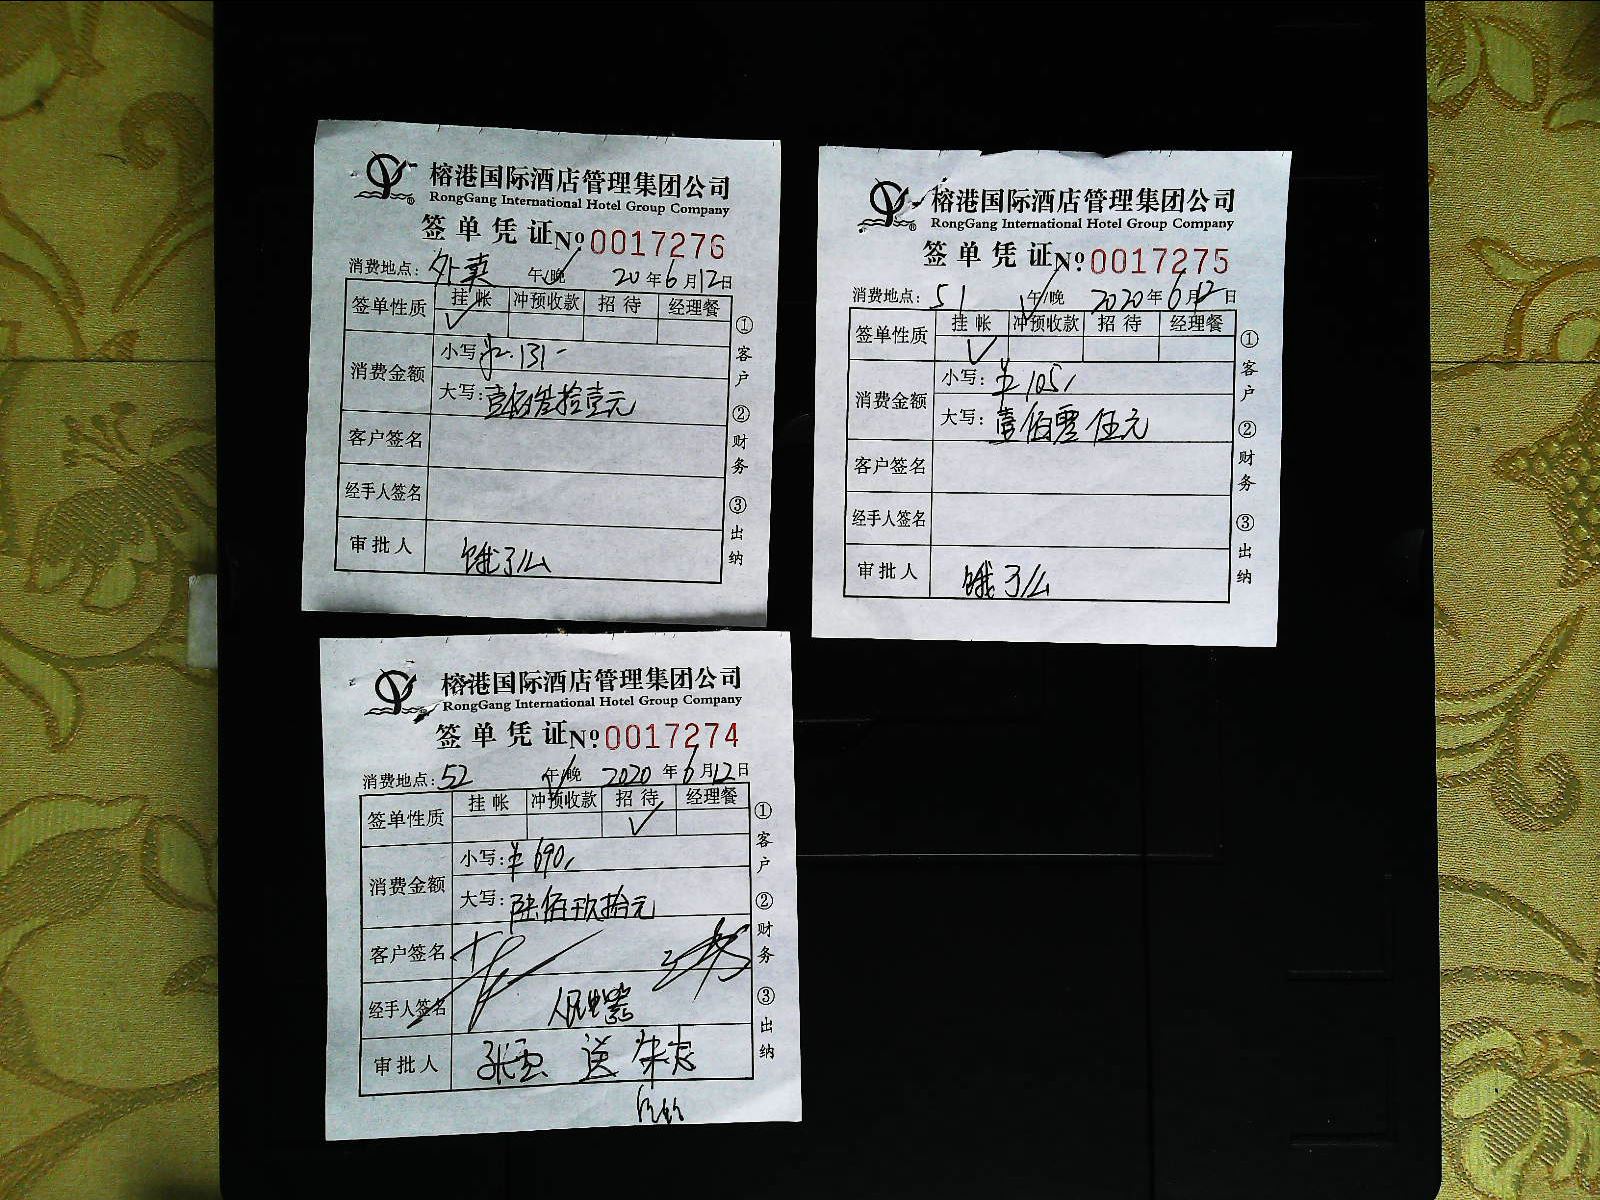 榕港国际酒店管理集团公司
RongGang International Hotel Group Company
签单凭证 № 0017276
消费地点: 外卖 午/晚 20年6月12日
签单性质 挂帐 冲预收款 招待 经理餐
✓
消费金额 小写: 131-
大写: 壹佰叁拾壹元
客户签名
经手人签名
审批人 饿了么
①客户 ②财务 ③出纳
榕港国际酒店管理集团公司
RongGang International Hotel Group Company
签单凭证 № 0017275
消费地点: 51 午/晚 2020年6月12日
签单性质 挂帐 冲预收款 招待 经理餐
✓
消费金额 小写: ¥105,
大写: 壹佰零伍元
客户签名
经手人签名
审批人 饿了么
①客户 ②财务 ③出纳
榕港国际酒店管理集团公司
RongGang International Hotel Group Company
签单凭证 № 0017274
消费地点: 52 午/晚 2020年6月12日
签单性质 挂帐 冲预收款 招待 经理餐
✓
消费金额 小写: ¥690,
大写: 陆佰玖拾元
客户签名
经手人签名
审批人 送
①客户 ②财务 ③出纳